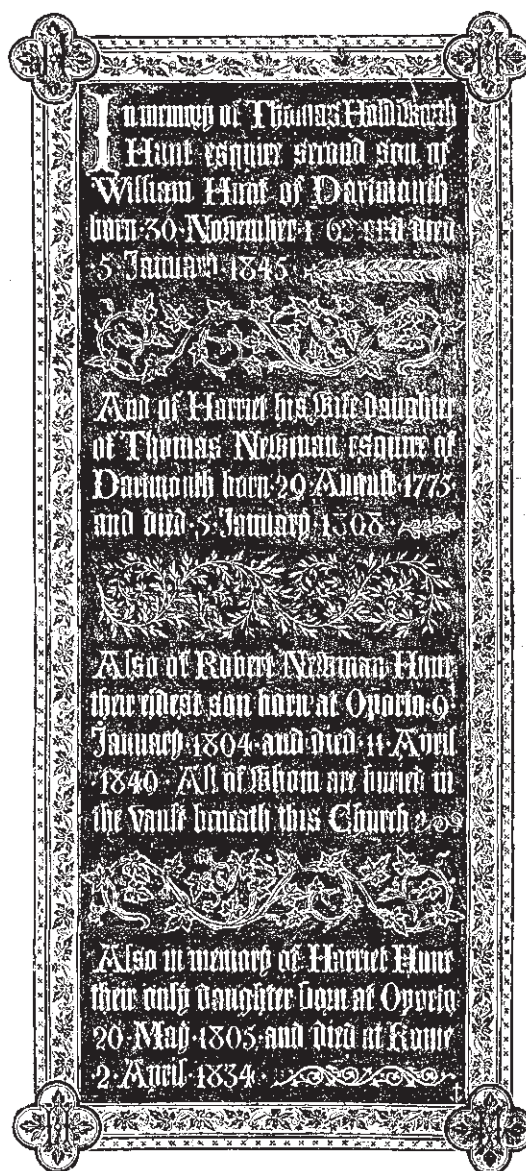 In memory of Thomas Holdsworth
Hunt esquire second son of
William Hunt of Dartmouth
born · 30 · November · and died
· 5 · January · 1845 ·
And of Harriet his Wife daughter
of Thomas Newman esquire of
Dartmouth born · 29 · August · 1775
and died · 5 · January · 1808 ·
Also of Robert Newman Hunt
their eldest son born at Oporto · 9 ·
January · 1804 · and died · 11 · April
· 1840 · All of Whom are buried in
the vault beneath this Church
Also in memory of Harriet Hunt
their only daughter born at Oporto
20 · May · 1805 · and died at Rome
2 · April · 1834 ·